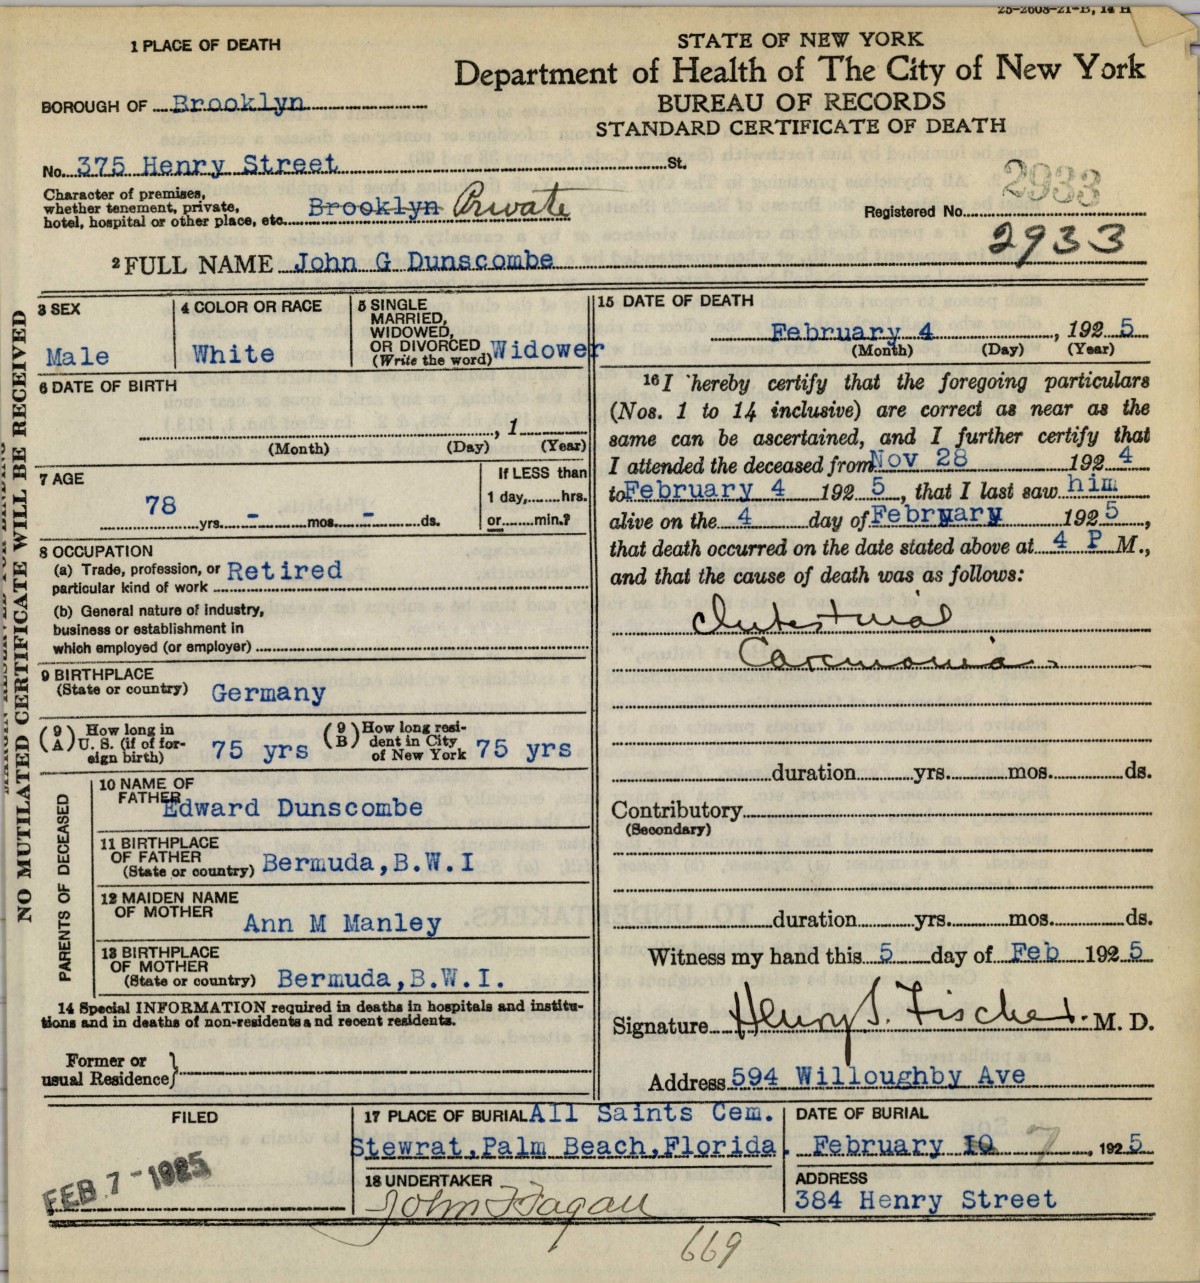 25-2608-21-B, 14 H
1 PLACE OF DEATH
STATE OF NEW YORK
Department of Health of The City of New York
BUREAU OF RECORDS
STANDARD CERTIFICATE OF DEATH
BOROUGH OF Brooklyn
No. 375 Henry Street St.
Character of premises,
whether tenement, private,
hotel, hospital or other place, etc. Brooklyn Private
2933
Registered No.
2933
2 FULL NAME John G Dunscombe
NO MUTILATED CERTIFICATE WILL BE RECEIVED
MARGIN RESERVED FOR BINDING
3 SEX
Male
4 COLOR OR RACE
White
5 SINGLE
MARRIED,
WIDOWED,
OR DIVORCED
(Write the word) Widower
6 DATE OF BIRTH
, 1
(Month) (Day) (Year)
7 AGE
78 yrs. - mos. - ds.
If LESS than
1 day, hrs.
or min.?
8 OCCUPATION
(a) Trade, profession, or
particular kind of work Retired
(b) General nature of industry,
business or establishment in
which employed (or employer)
9 BIRTHPLACE
(State or country) Germany
(9 A) How long in
U. S. (if of for-
eign birth) 75 yrs
(9 B) How long resi-
dent in City
of New York 75 yrs
PARENTS OF DECEASED
10 NAME OF
FATHER Edward Dunscombe
11 BIRTHPLACE
OF FATHER
(State or country) Bermuda,B.W.I
12 MAIDEN NAME
OF MOTHER Ann M Manley
13 BIRTHPLACE
OF MOTHER
(State or country) Bermuda,B.W.I.
14 Special INFORMATION required in deaths in hospitals and institu-
tions and in deaths of non-residents and recent residents.
Former or
usual Residence
15 DATE OF DEATH
February 4 , 192 5
(Month) (Day) (Year)
16 I hereby certify that the foregoing particulars
(Nos. 1 to 14 inclusive) are correct as near as the
same can be ascertained, and I further certify that
I attended the deceased from Nov 28 192 4
to February 4 192 5, that I last saw him
alive on the 4 day of February 192 5,
that death occurred on the date stated above at 4 P M.,
and that the cause of death was as follows:
Intestinal
Carcinoma.
duration yrs. mos. ds.
Contributory
(Secondary)
duration yrs. mos. ds.
Witness my hand this 5 day of Feb 192 5
Signature Henry S. Fischer. M. D.
Address 594 Willoughby Ave
FILED
FEB 7 - 1925
17 PLACE OF BURIAL All Saints Cem.
Stewrat,Palm Beach,Florida.
DATE OF BURIAL
February 10 7, 192 5
18 UNDERTAKER
John F Fagan
ADDRESS
384 Henry Street
669